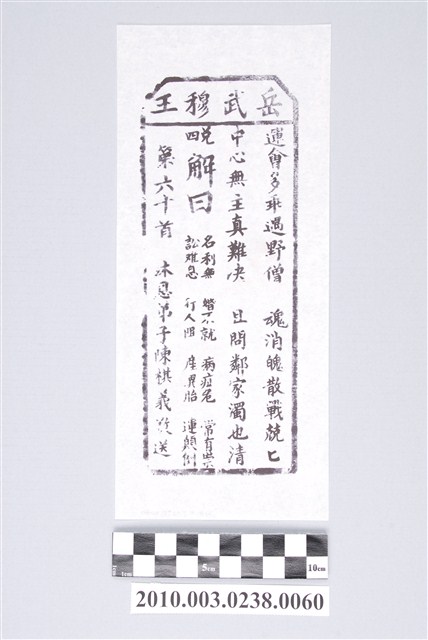 岳武穆王
運會多乖遇野僧　魂消魄散戰兢兢
中心無主真難決　且問鄰家濁也清
兌四
解曰
名利無　婚不就　病症危　常有些
訟難息　行人阻　產異胎　運顛倒
第六十首　沐恩弟子陳棋義敬送
1cm 5cm 10cm
2010.003.0238.0060